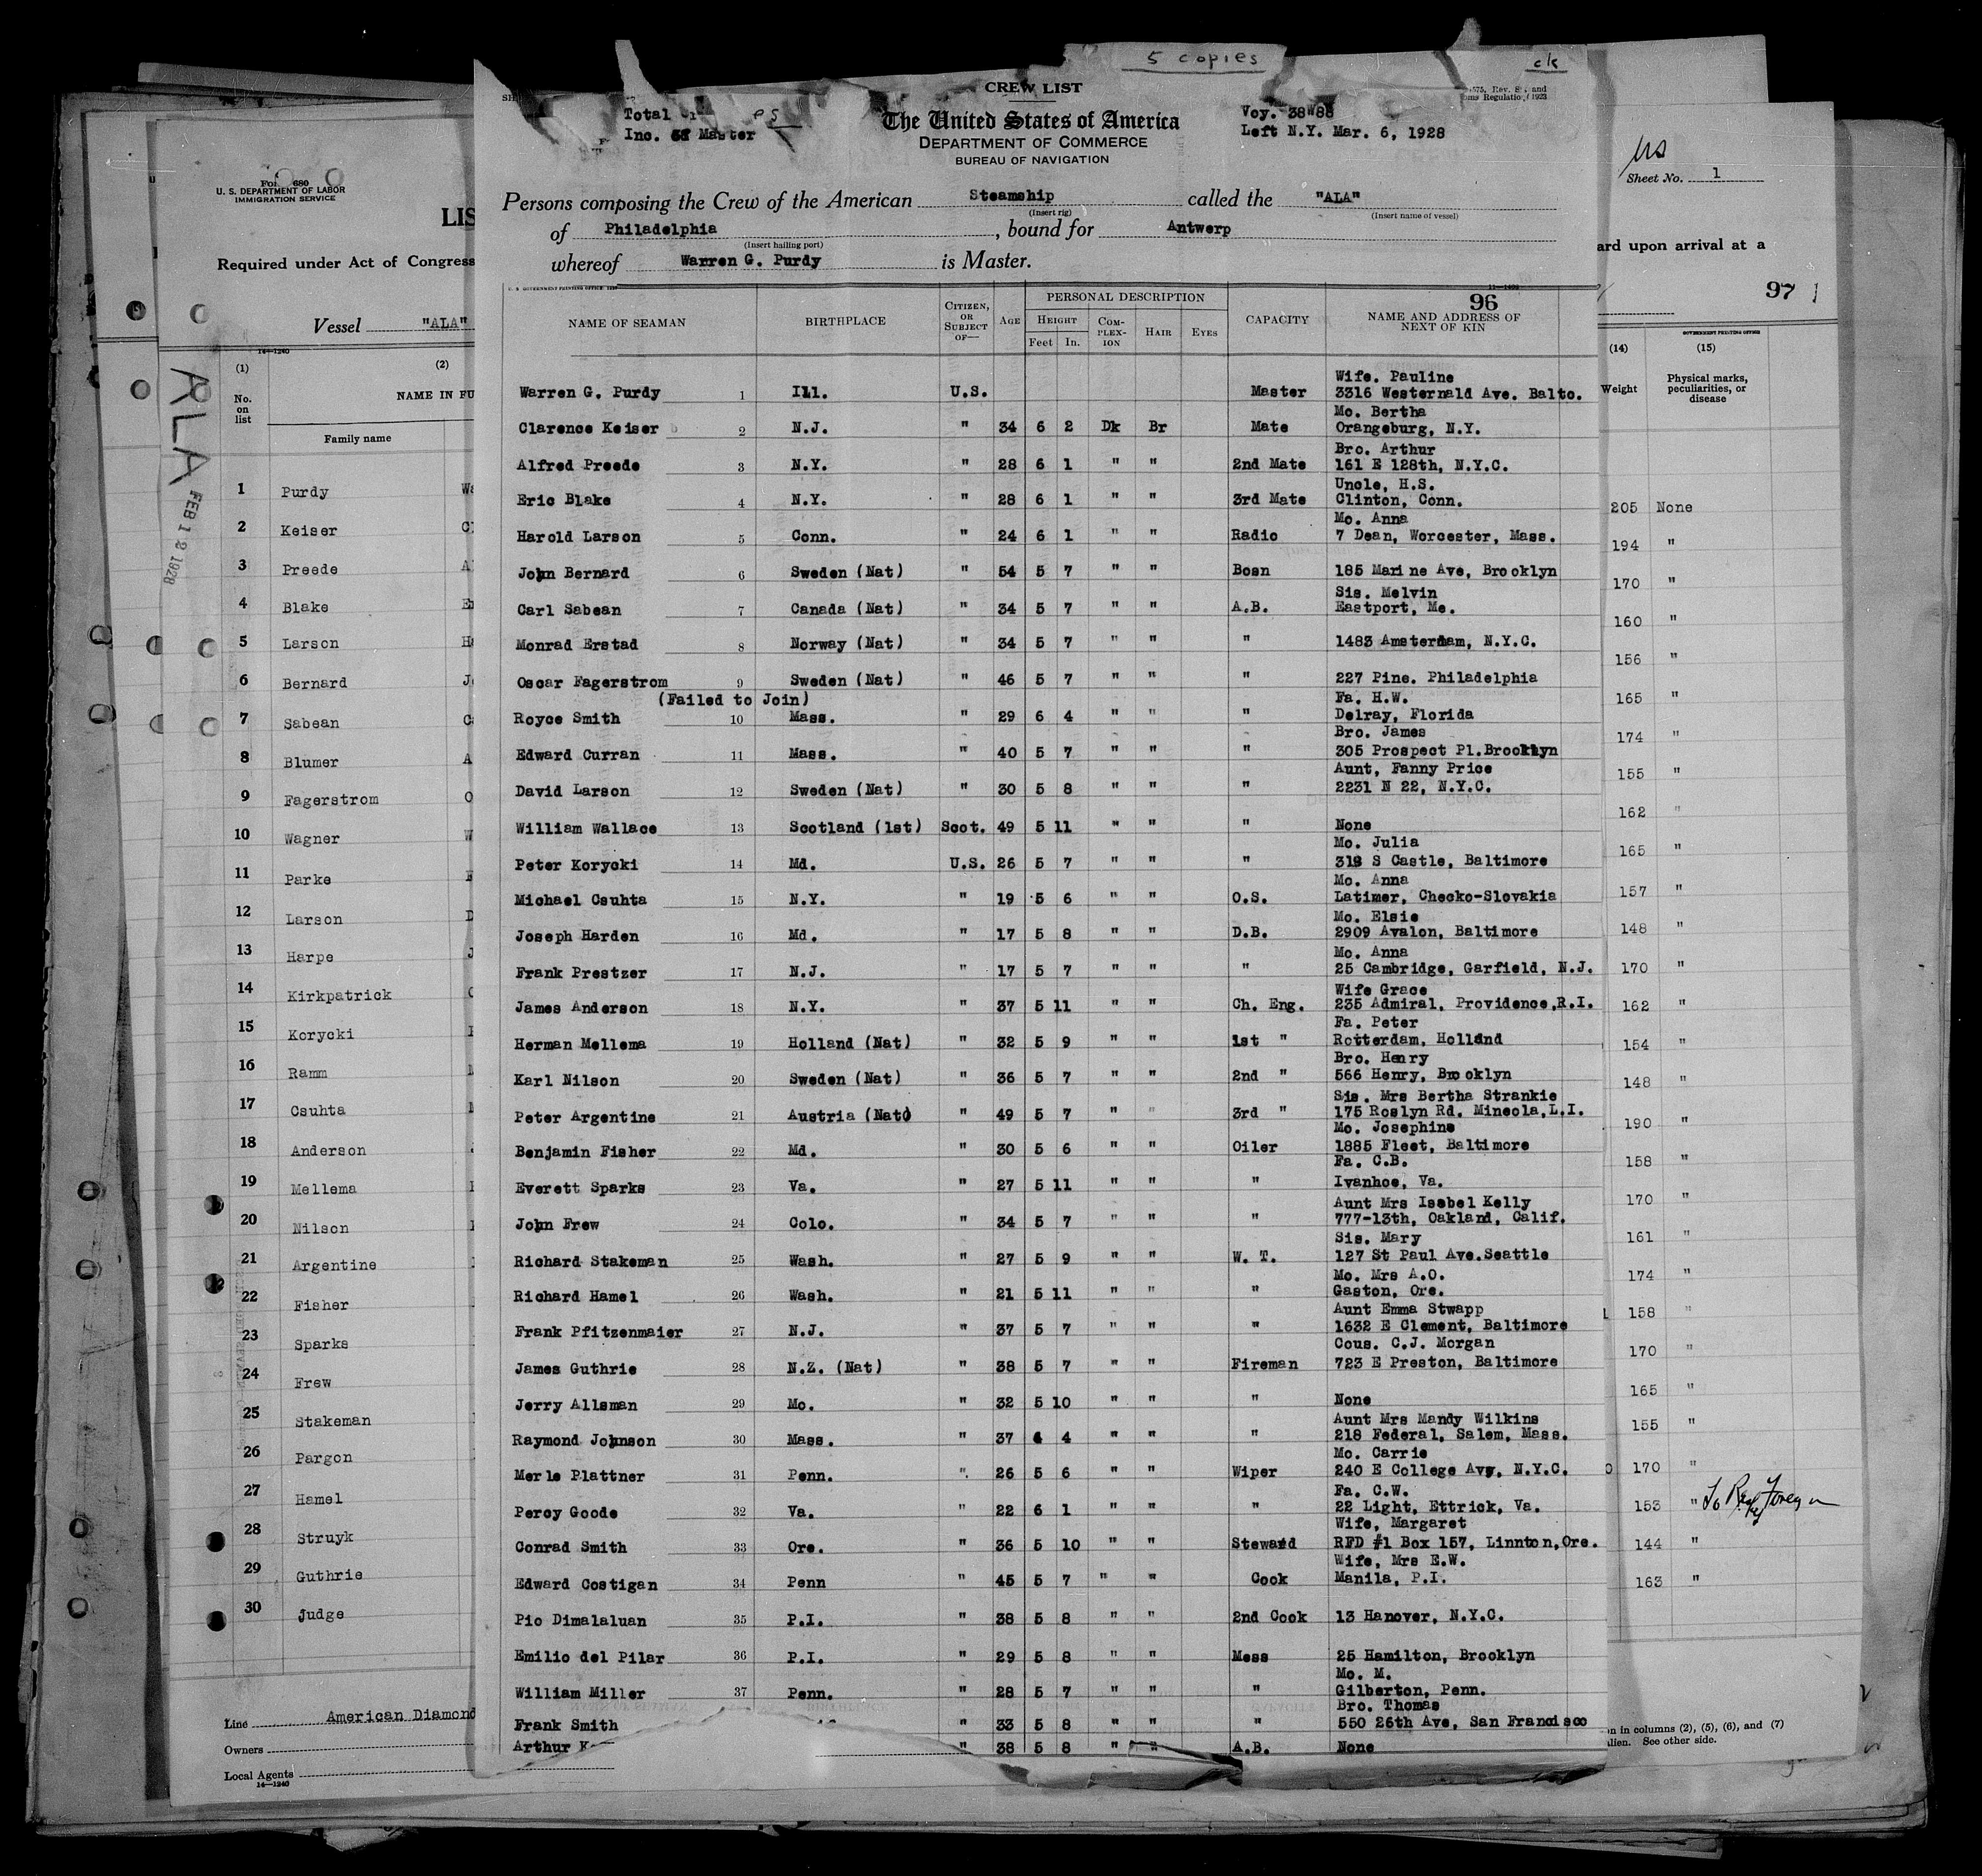 5 copies
ck
CREW LIST
Total
Inc. Master
The United States of America
DEPARTMENT OF COMMERCE
BUREAU OF NAVIGATION
Voy. 38W88
Left N.Y. Mar. 6, 1928
Persons composing the Crew of the American Steamship called the "ALA"
(Insert rig) (Insert name of vessel)
of Philadelphia, bound for Antwerp
(Insert hailing port)
whereof Warren G. Purdy is Master.
96
NAME OF SEAMAN BIRTHPLACE CITIZEN, OR SUBJECT OF— AGE PERSONAL DESCRIPTION HEIGHT Feet In. COMPLEXION HAIR EYES CAPACITY NAME AND ADDRESS OF NEXT OF KIN
Wife. Pauline
Warren G. Purdy 1 Ill. U.S. Master 3316 Westernald Ave. Balto.
Mo. Bertha
Clarence Keiser 2 N.J. " 34 6 2 Dk Br Mate Orangeburg, N.Y.
Bro. Arthur
Alfred Preede 3 N.Y. " 28 6 1 " " 2nd Mate 161 E 128th, N.Y.C.
Uncle, H.S.
Eric Blake 4 N.Y. " 28 6 1 " " 3rd Mate Clinton, Conn.
Mo. Anna
Harold Larson 5 Conn. " 24 6 1 " " Radio 7 Dean, Worcester, Mass.
John Bernard 6 Sweden (Nat) " 54 5 7 " " Bosn 185 Marine Ave, Brooklyn
Sis. Melvin
Carl Sabean 7 Canada (Nat) " 34 5 7 " " A.B. Eastport, Me.
Monrad Erstad 8 Norway (Nat) " 34 5 7 " " " 1483 Amsterdam, N.Y.C.
Oscar Fagerstrom 9 Sweden (Nat) " 46 5 7 " " " 227 Pine. Philadelphia
(Failed to Join) Fa. H.W.
Royce Smith 10 Mass. " 29 6 4 " " " Delray, Florida
Bro. James
Edward Curran 11 Mass. " 40 5 7 " " " 305 Prospect Pl.Brooklyn
Aunt, Fanny Price
David Larson 12 Sweden (Nat) " 30 5 8 " " " 2231 N 22, N.Y.C.
William Wallace 13 Scotland (1st) Scot. 49 5 11 " " " None
Mo. Julia
Peter Korycki 14 Md. U.S. 26 5 7 " " " 318 S Castle, Baltimore
Mo. Anna
Michael Csuhta 15 N.Y. " 19 5 6 " " O.S. Latimer, Checko-Slovakia
Mo. Elsie
Joseph Harden 16 Md. " 17 5 8 " " D.B. 2909 Avalon, Baltimore
Mo. Anna
Frank Prestzer 17 N.J. " 17 5 7 " " " 25 Cambridge, Garfield, N.J.
Wife Grace
James Anderson 18 N.Y. " 37 5 11 " " Ch. Eng. 235 Admiral, Providence,R.I.
Fa. Peter
Herman Mellema 19 Holland (Nat) " 32 5 9 " " 1st " Rotterdam, Holland
Bro. Henry
Karl Nilson 20 Sweden (Nat) " 36 5 7 " " 2nd " 566 Henry, Brooklyn
Sis. Mrs Bertha Strankie
Peter Argentine 21 Austria (Nat) " 49 5 7 " " 3rd " 175 Roslyn Rd. Mineola,L.I.
Mo. Josephine
Benjamin Fisher 22 Md. " 30 5 6 " " Oiler 1885 Fleet, Baltimore
Fa. C.B.
Everett Sparks 23 Va. " 27 5 11 " " " Ivanhoe, Va.
Aunt Mrs Isabel Kelly
John Frew 24 Colo. " 34 5 7 " " " 777-13th, Oakland, Calif.
Sis. Mary
Richard Stakeman 25 Wash. " 27 5 9 " " W. T. 127 St Paul Ave.Seattle
Mo. Mrs A.O.
Richard Hamel 26 Wash. " 21 5 11 " " " Gaston, Ore.
Aunt Emma Stwapp
Frank Pfitzenmaier 27 N.J. " 37 5 7 " " " 1632 E Clement, Baltimore
Cous. C.J. Morgan
James Guthrie 28 N.Z. (Nat) " 38 5 7 " " Fireman 723 E Preston, Baltimore
Jerry Allsman 29 Mo. " 32 5 10 " " " None
Aunt Mrs Mandy Wilkins
Raymond Johnson 30 Mass. " 37 4 4 " " " 218 Federal, Salem, Mass.
Mo. Carrie
Merle Plattner 31 Penn. " 26 5 6 " " Wiper 240 E College Avy, N.Y.C.
Fa. C.W.
Percy Goode 32 Va. " 22 6 1 " " " 22 Light, Ettrick, Va.
Wife, Margaret
Conrad Smith 33 Ore. " 36 5 10 " " Steward RFD #1 Box 157, Linnton,Ore.
Wife, Mrs E.W.
Edward Costigan 34 Penn " 45 5 7 " " Cook Manila, P.I.
Pio Dimalaluan 35 P.I. " 38 5 8 " " 2nd Cook 13 Hanover, N.Y.C.
Emilio del Pilar 36 P.I. " 29 5 8 " " Mess 25 Hamilton, Brooklyn
Mo. M.
William Miller 37 Penn. " 28 5 7 " " " Gilberton, Penn.
Bro. Thomas
Frank Smith " 33 5 8 " " " 550 26th Ave, San Francisco
Arthur " 38 5 8 " " A.B. None
U. S. DEPARTMENT OF LABOR
IMMIGRATION SERVICE
LIS
Required under Act of Congress
Vessel "ALA"
14—1240
ALA
FEB 12 1928
(1) (2)
No. on list
NAME IN FU
Family name
1 Purdy
2 Keiser
3 Preede
4 Blake
5 Larson
6 Bernard
7 Sabean
8 Blumer
9 Fagerstrom
10 Wagner
11 Parke
12 Larson
13 Harpe
14 Kirkpatrick
15 Korycki
16 Ramm
17 Csuhta
18 Anderson
19 Mellema
20 Nilson
21 Argentine
22 Fisher
23 Sparks
24 Frew
25 Stakeman
26 Pargon
27 Hamel
28 Struyk
29 Guthrie
30 Judge
Line American Diamond
Owners
Local Agents
14—1240
Sheet No. 1
ard upon arrival at a
97
GOVERNMENT PRINTING OFFICE
(14) (15)
Weight
Physical marks, peculiarities, or disease
205 None
194 "
170 "
160 "
156 "
165 "
174 "
155 "
162 "
165 "
157 "
148 "
170 "
162 "
154 "
148 "
190 "
158 "
170 "
161 "
174 "
158 "
170 "
165 "
155 "
170 "
153 "
144 "
163 "
on in columns (2), (5), (6), and (7)
alien. See other side.